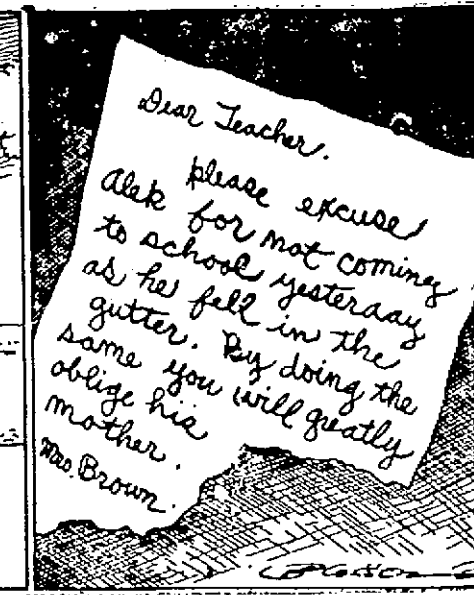 Dear Teacher.
please excuse
Alek for not coming
to school yesterday
as he fell in the
gutter. By doing the
same you will greatly
oblige his
mother.
Mrs. Brown.